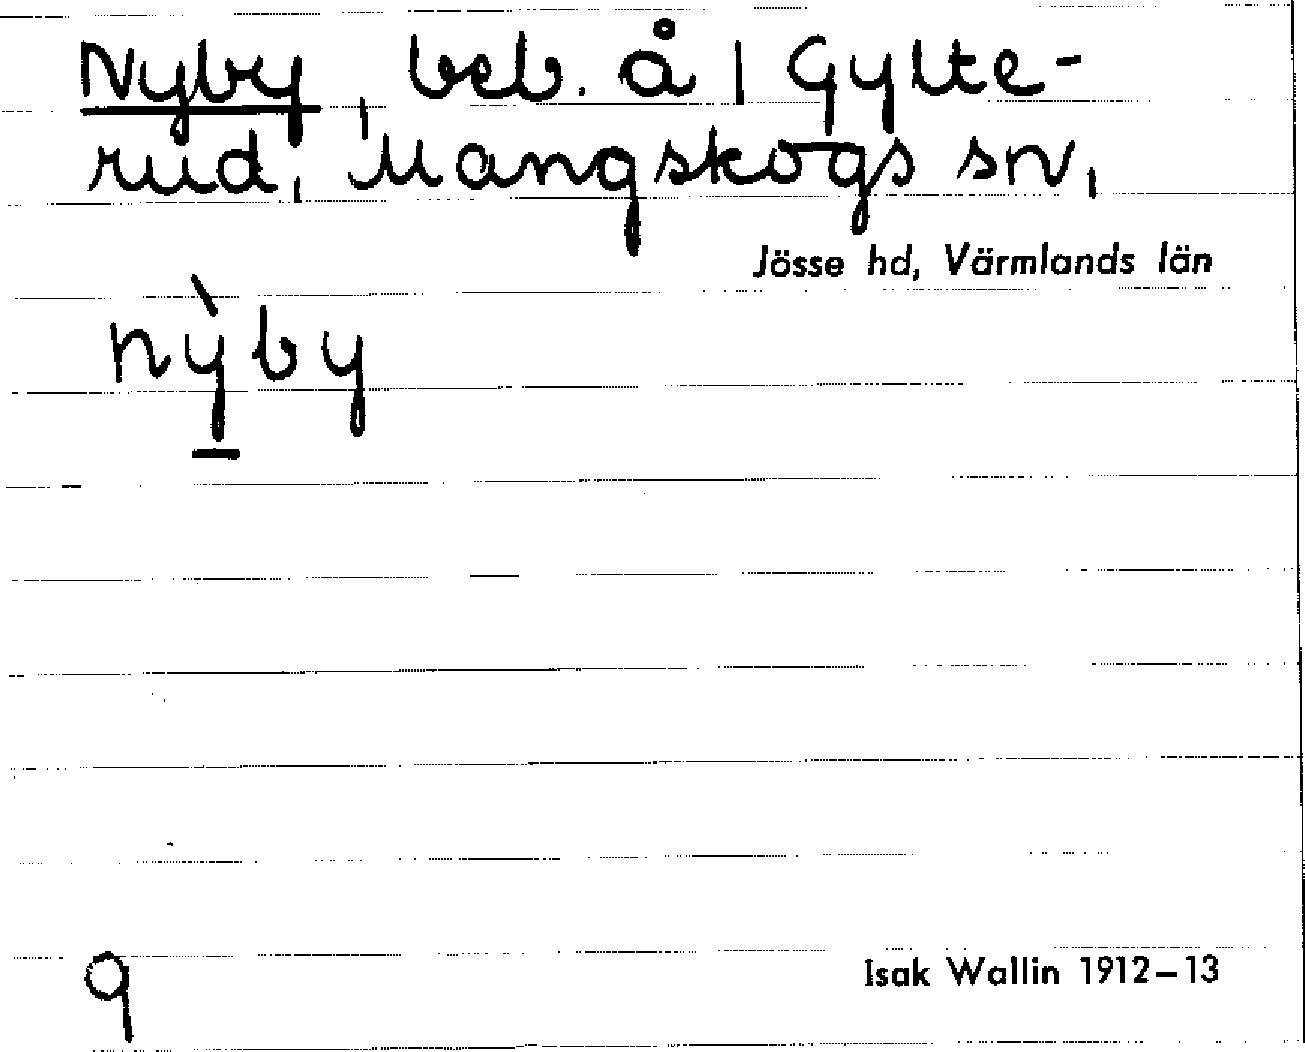 Nyby, beb. å 1 Gylte-
rud, Mangskogs sn,
Jösse hd, Värmlands län
nỳ̠by
9
Isak Wallin 1912–13